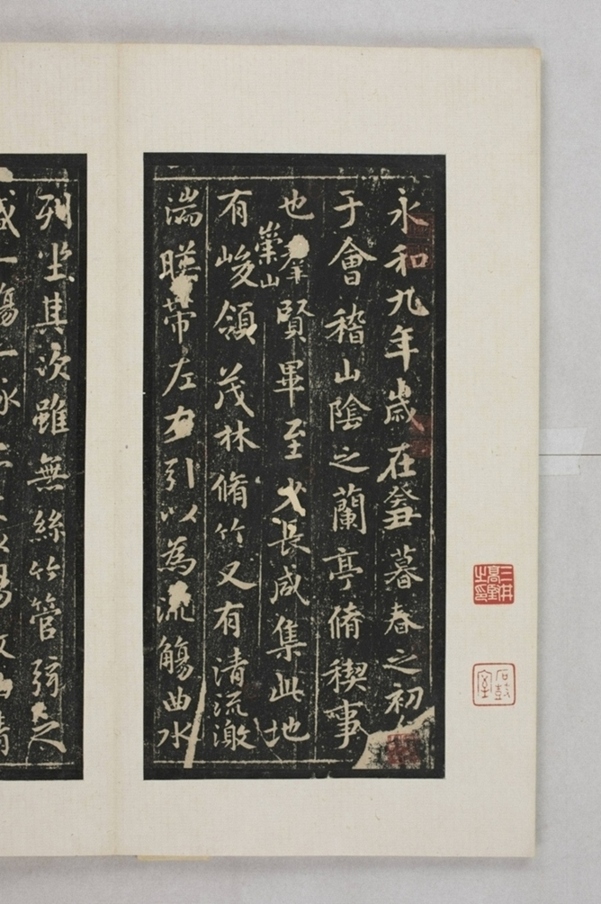 永和九年歲在癸丑暮春之初
于會稽山陰之蘭亭脩禊事
也羣賢畢至少長咸集此地
有崇山峻領茂林脩竹又有清流激
湍暎帶左右引以為流觴曲水
列坐其次雖無絲竹管弦之
盛一觴一詠
三井高堅之印